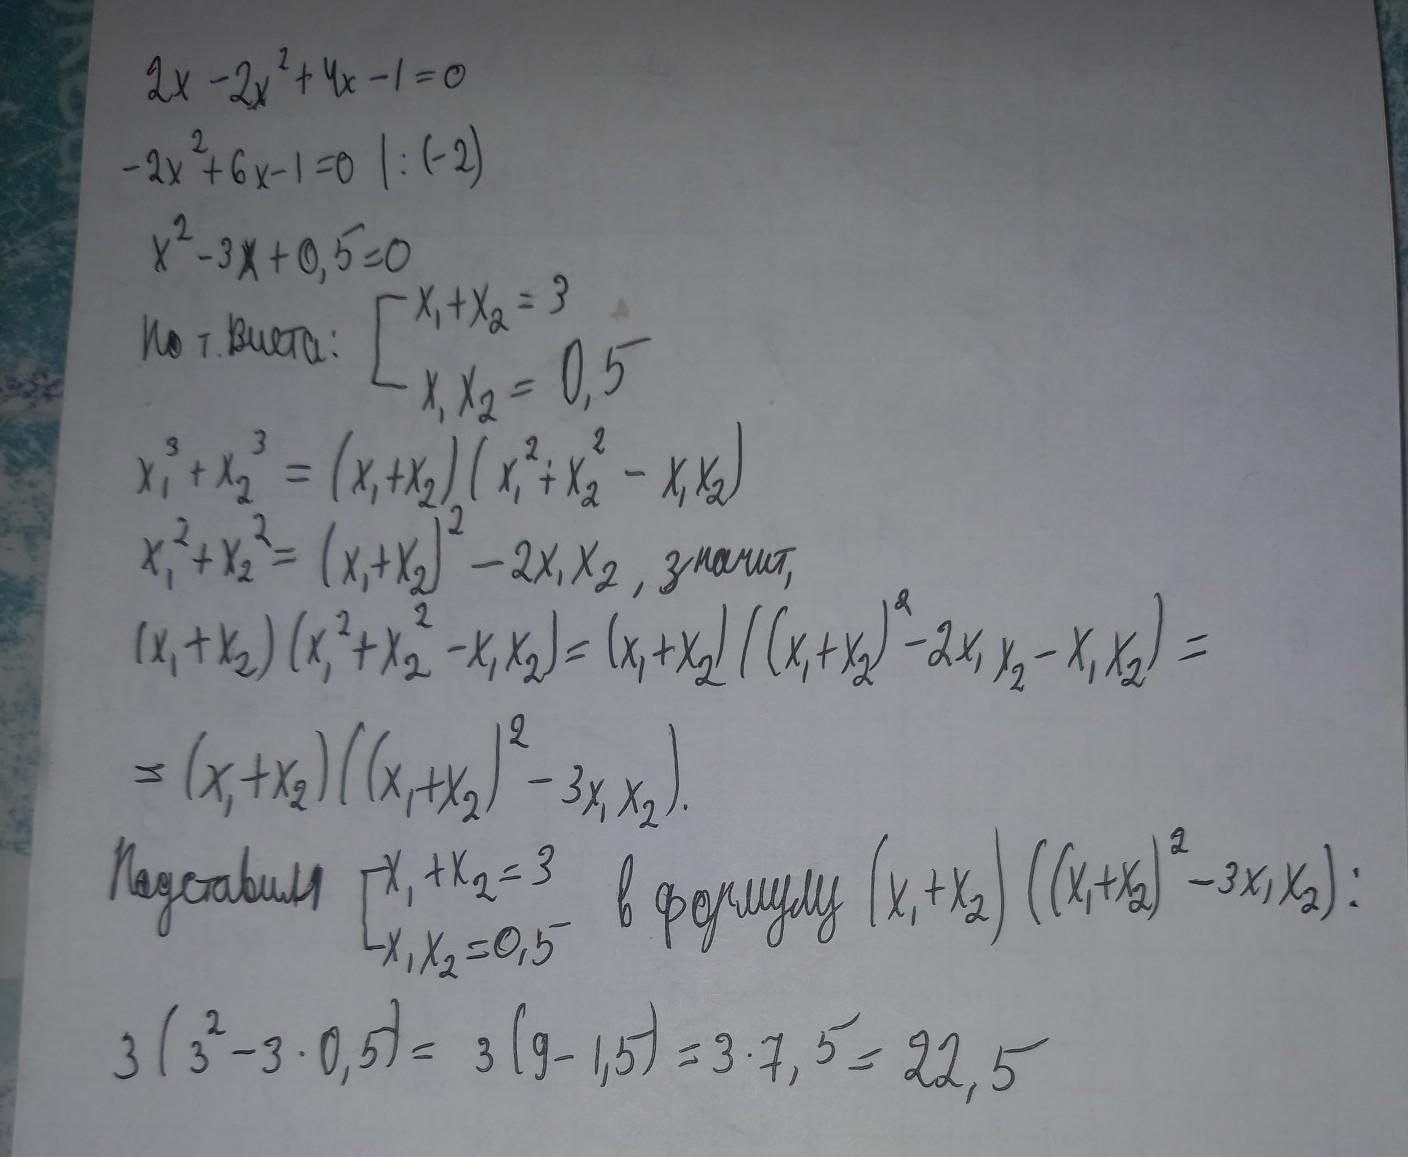 2x - 2x² + 4x - 1 = 0
-2x² + 6x - 1 = 0 | : (-2)
x² - 3x + 0,5 = 0
По т. Виета: [ x₁ + x₂ = 3
x₁x₂ = 0,5
x₁³ + x₂³ = (x₁ + x₂)(x₁² + x₂² - x₁x₂)
x₁² + x₂² = (x₁ + x₂)² - 2x₁x₂, значит,
(x₁ + x₂)(x₁² + x₂² - x₁x₂) = (x₁ + x₂)((x₁ + x₂)² - 2x₁x₂ - x₁x₂) =
= (x₁ + x₂)((x₁ + x₂)² - 3x₁x₂).
Подставим [ x₁ + x₂ = 3
x₁x₂ = 0,5 в формулу (x₁ + x₂)((x₁ + x₂)² - 3x₁x₂):
3(3² - 3 · 0,5) = 3(9 - 1,5) = 3 · 7,5 = 22,5